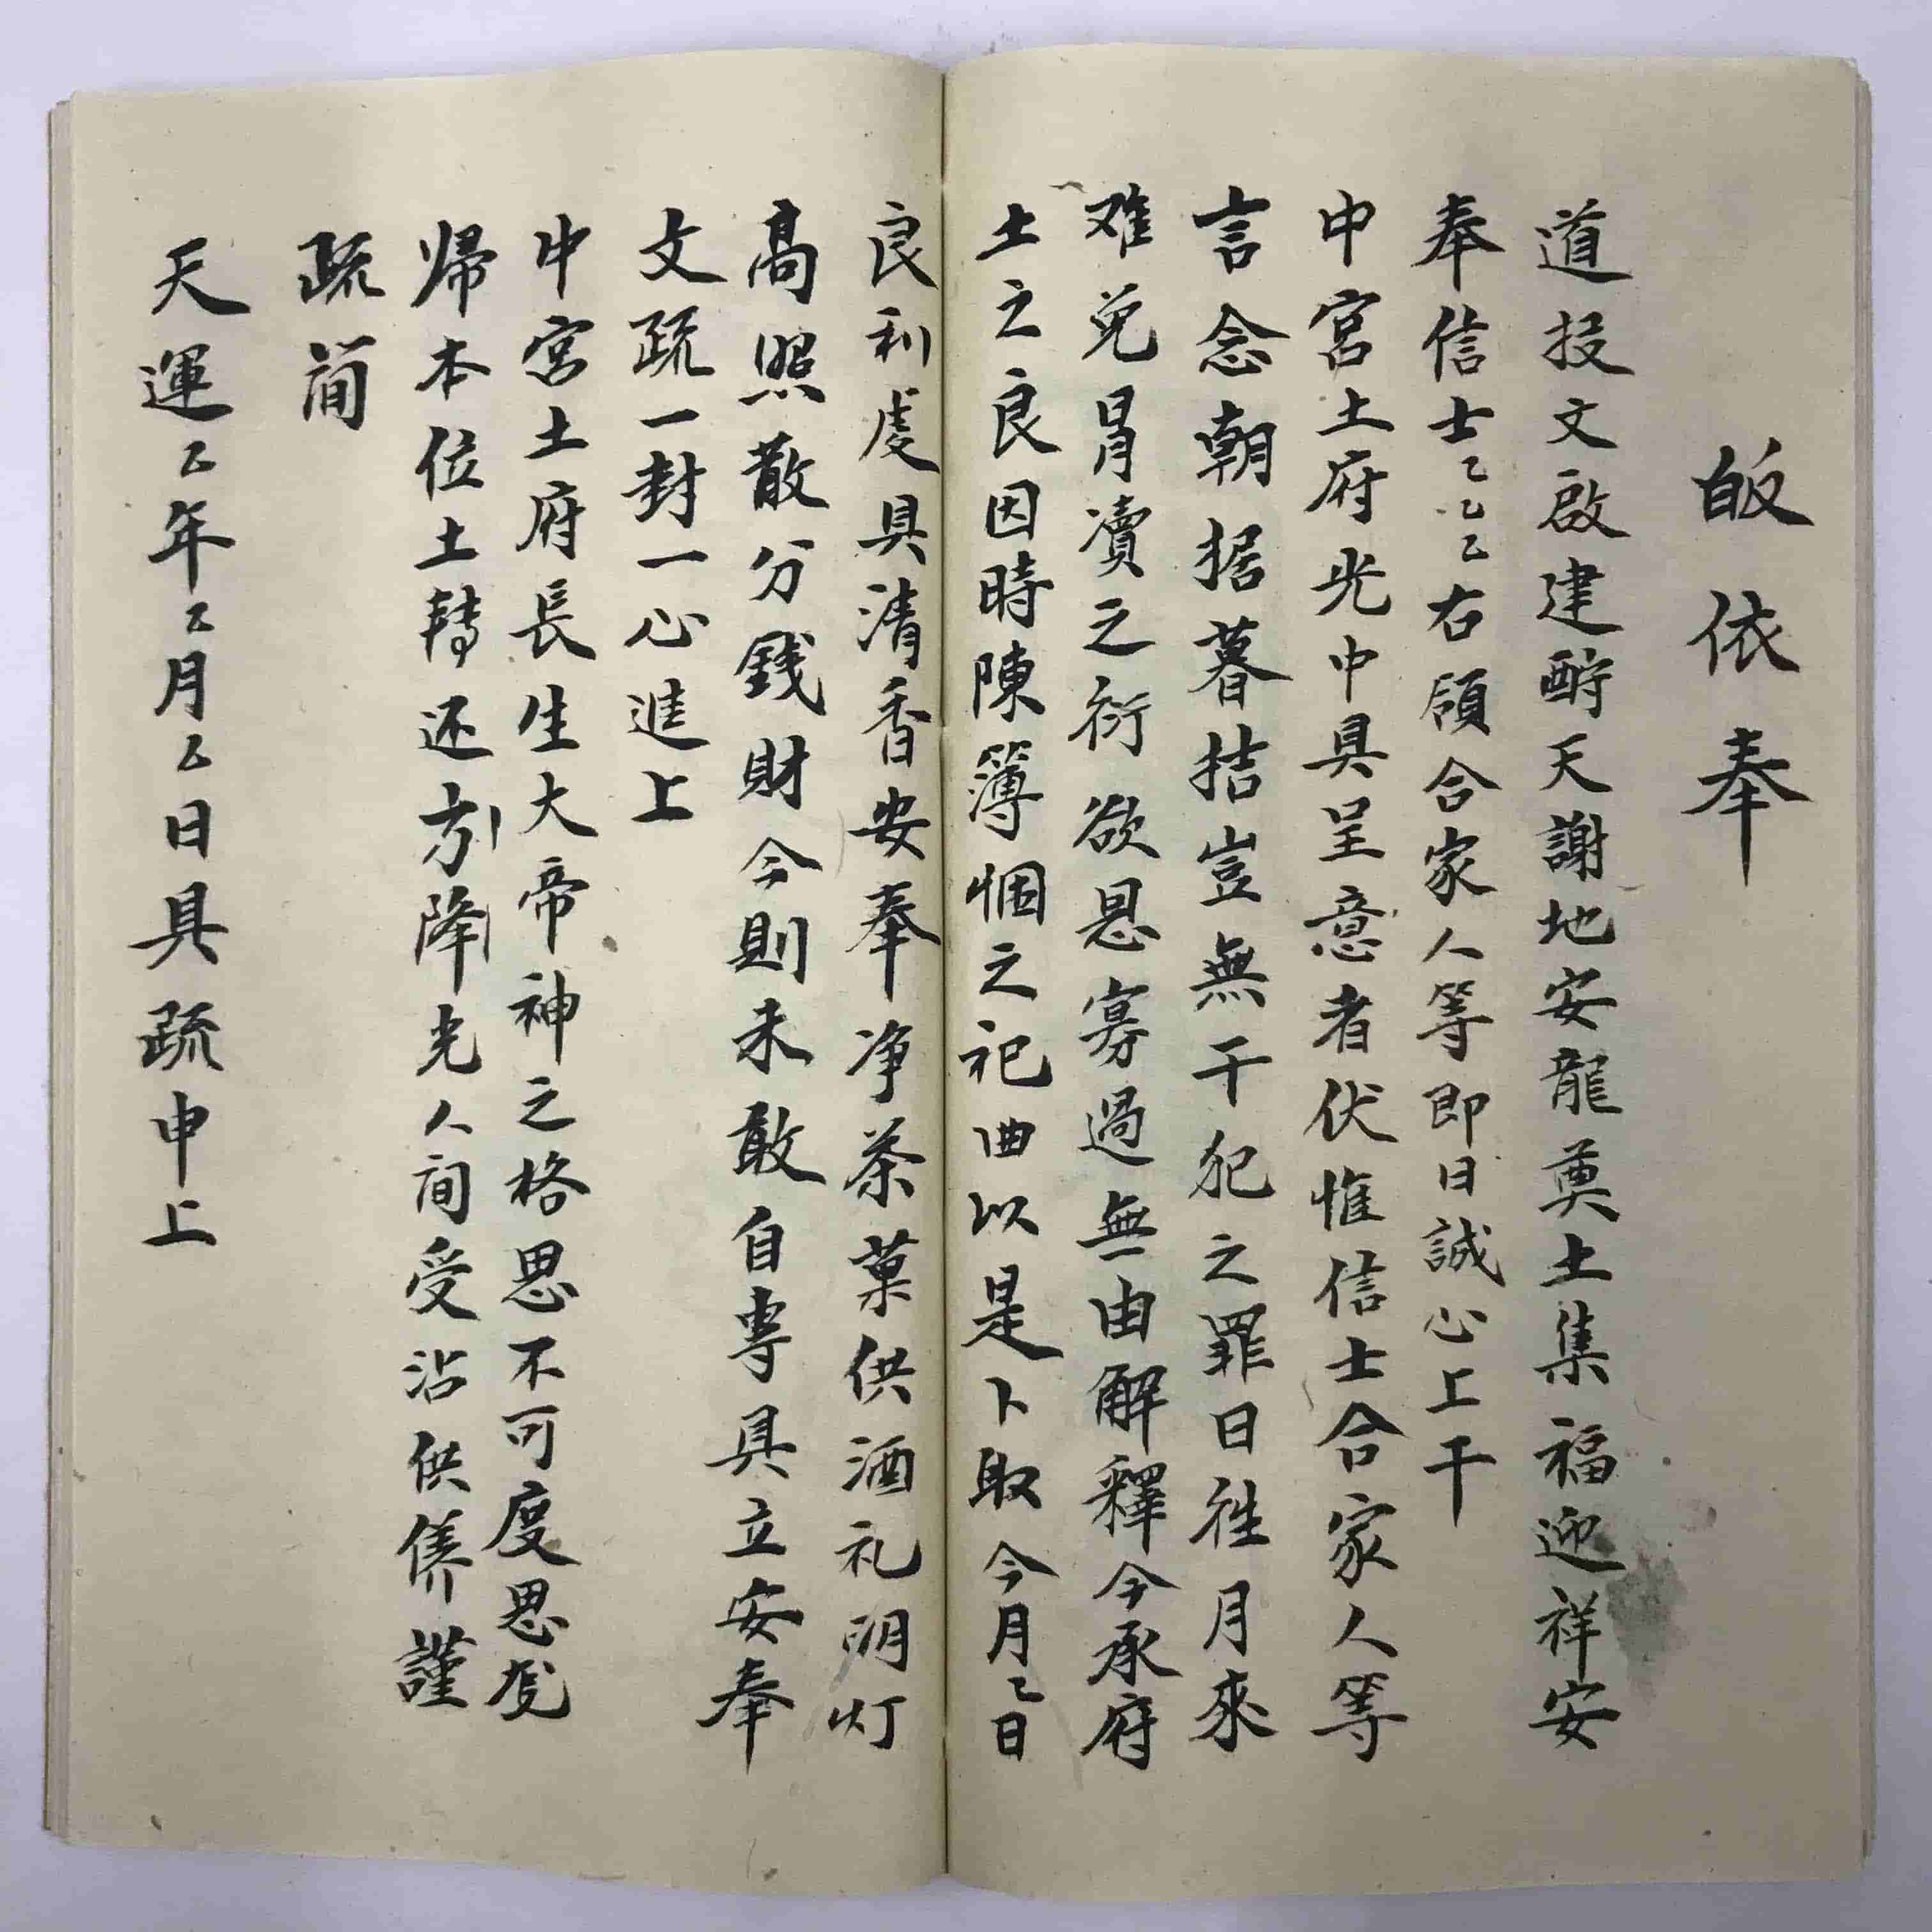 皈依奉
道投文啟建酧天謝地安龍奠土集福迎祥安
奉信士乙乙乙右領合家人等即日誠心上干
中宮土府光中具呈意者伏惟信士合家人等
言念朝据暮拮豈無干犯之罪日徃月來
难免冒瀆之衍欲恳寡過無由解釋今承府
土之良因時陳簿悃之祀由以是卜取今月乙日
良利虔具清香安奉净茶菓供酒礼明灯
高照散分錢財今則未敢自專具立安奉
文疏一封一心進上
中宮土府長生大帝神之格思不可度思
帰本位土轉还方降光人間受沾供儀謹
疏简
天運乙年乙月乙日具疏申上